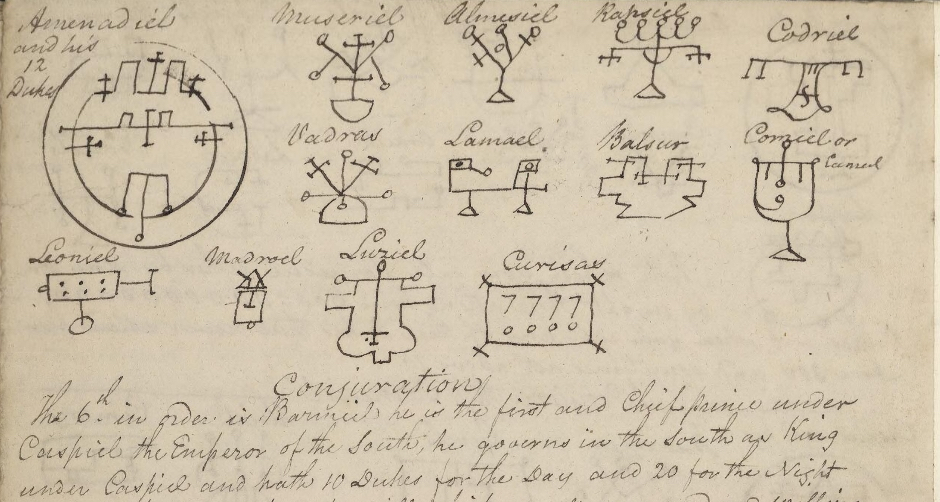 Amenadiel
and his
12
Dukes
Museriel
Almesiel
Rapsiel
Codriel
Vadras
Lamael
Balsur
Corziel or
Leoniel
Madroel
Luziel
Curisas
7 7 7 7
Conjuration
The 6th in order is Barmiel he is the first and Chief prince under
Caspiel the Emperor of the South, he governs in the South as King
under Caspiel and hath 10 Dukes for the Day and 20 for the Night